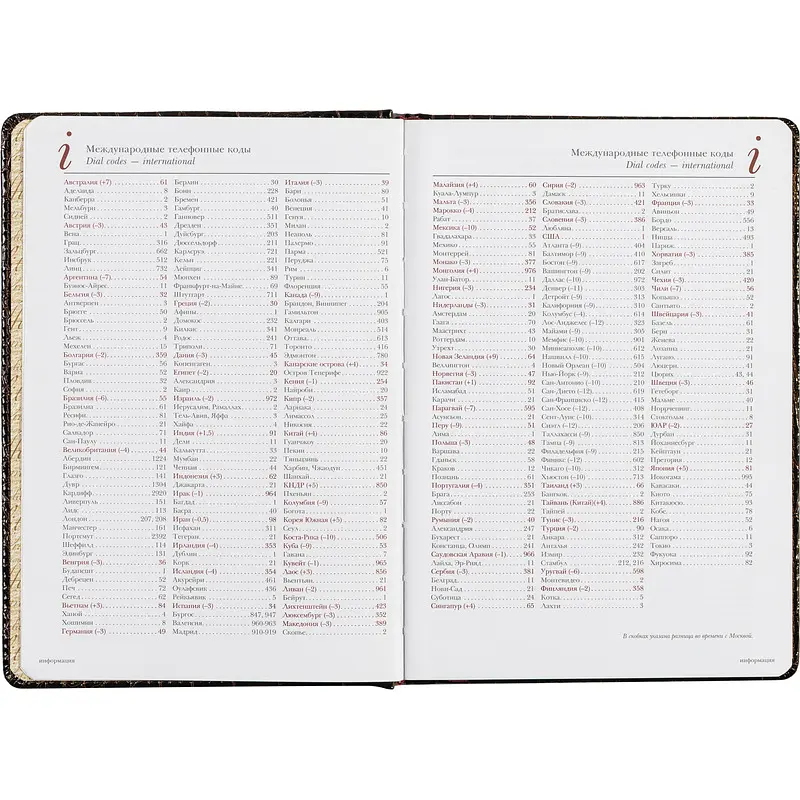 Международные телефонные коды
Dial codes — international
Австралия (+7) 61
Аделаида 8
Канберра 2
Мельбурн 3
Сидней 2
Австрия (–3) 43
Вена 1
Грац 316
Зальцбург 662
Инсбрук 512
Линц 732
Аргентина (–7) 54
Буэнос-Айрес 11
Бельгия (–3) 32
Антверпен 3
Брюгге 50
Брюссель 2
Гент 9
Льеж 4
Мехелен 15
Болгария (–2) 359
Бургас 56
Варна 52
Пловдив 32
София 2
Бразилия (–6) 55
Бразилиа 61
Ресифи 81
Рио-де-Жанейро 21
Салвадор 71
Сан-Паулу 11
Великобритания (–4) 44
Абердин 1224
Бирмингем 121
Глазго 141
Дувр 1304
Кардифф 2920
Ливерпуль 151
Лидс 113
Лондон 207, 208
Манчестер 161
Портсмут 2392
Шеффилд 114
Эдинбург 131
Венгрия (–3) 36
Будапешт 1
Дебрецен 52
Печ 72
Сегед 62
Вьетнам (+3) 84
Ханой 4
Хошимин 8
Германия (–3) 49
Берлин 30
Бонн 228
Бремен 421
Гамбург 40
Ганновер 511
Дрезден 351
Дуйсбург 203
Дюссельдорф 211
Карлсруэ 721
Кельн 221
Лейпциг 341
Мюнхен 89
Франкфурт-на-Майне 69
Штутгарт 711
Греция (–2) 30
Афины 1
Домокос 232
Килкис 341
Родос 241
Триполи 71
Дания (–3) 45
Копенгаген 3
Египет (–2) 20
Александрия 3
Каир 2
Израиль (–2) 972
Иерусалим, Рамаллах 2
Тель-Авив, Яффа 3
Хайфа 4
Индия (+1,5) 91
Дели 11
Калькутта 33
Мумбаи 22
Ченнаи 44
Индонезия (+3) 62
Джакарта 21
Ирак (–1) 964
Багдад 1
Басра 40
Иран (–0,5) 98
Исфахан 311
Тегеран 21
Ирландия (–4) 353
Дублин 1
Корк 21
Исландия (–4) 354
Акурейри 461
Оулафсвик 436
Рейкьявик 5
Испания (–3) 34
Бургос 847, 947
Валенсия 960-963
Мадрид 910-919
Италия (–3) 39
Бари 80
Болонья 51
Венеция 41
Генуя 10
Милан 2
Неаполь 81
Палермо 91
Парма 521
Перуджа 75
Рим 6
Турин 11
Флоренция 55
Канада (–9) 1
Брандон, Виннипег 204
Гамильтон 905
Калгари 403
Монреаль 514
Оттава 613
Торонто 416
Эдмонтон 780
Канарские острова (+4) 34
Остров Тенерифе 922
Кения (–1) 254
Найроби 20
Кипр (–2) 357
Ларнака 24
Лимассол 25
Никосия 22
Китай (+4) 86
Гуанчжоу 20
Пекин 10
Тяньцзинь 22
Харбин, Чжаодун 451
Шанхай 21
КНДР (+5) 850
Пхеньян 2
Колумбия (–9) 57
Богота 1
Корея Южная (+5) 82
Сеул 2
Коста-Рика (–10) 506
Куба (–9) 53
Гавана 7
Кувейт (–1) 965
Лаос (+3) 856
Вьентьян 21
Ливан (–2) 961
Бейрут 1
Лихтенштейн (–3) 423
Люксембург (–3) 352
Македония (–3) 389
Скопье 2
информация
Международные телефонные коды
Dial codes — international
Малайзия (+4) 60
Куала-Лумпур 3
Мальта (–3) 356
Марокко (–4) 212
Рабат 37
Мексика (–10) 52
Гвадалахара 33
Мехико 55
Монтеррей 81
Монако (–3) 377
Монголия (+4) 976
Улан-Батор 11
Нигерия (–3) 234
Лагос 1
Нидерланды (–3) 31
Амстердам 20
Гаага 70
Маастрихт 43
Роттердам 10
Утрехт 30
Новая Зеландия (+9) 64
Веллингтон 4
Норвегия (–3) 47
Пакистан (+1) 92
Исламабад 51
Карачи 21
Парагвай (–7) 595
Асунсьон 21
Перу (–9) 51
Лима 1
Польша (–3) 48
Варшава 22
Гданьск 58
Краков 12
Познань 61
Португалия (–4) 351
Брага 253
Лиссабон 21
Порту 22
Румыния (–2) 40
Бухарест 21
Констанца, Олимп 241
Саудовская Аравия (–1) 966
Лайла, Эр-Рияд 11
Сербия (–3) 381
Белград 11
Нови-Сад 21
Суботица 24
Сингапур (+4) 65
Сирия (–2) 963
Дамаск 11
Словакия (–3) 421
Братислава 2
Словения (–3) 386
Любляна 1
США 1
Атланта (–9) 404
Балтимор (–9) 410
Бостон (–9) 617
Вашингтон (–9) 202
Даллас (–10) 972
Денвер (–11) 303
Детройт (–9) 313
Калифорния (–9) 310
Колумбус (–9) 614
Лос-Анджелес (–12) 323
Майами (–9) 305
Мемфис (–10) 901
Миннеаполис (–10) 612
Нашвилл (–10) 615
Новый Орлеан (–10) 504
Нью-Йорк (–9) 212
Сан-Антонио (–10) 210
Сан-Диего (–12) 619
Сан-Франциско (–12) 415
Сан-Хосе (–12) 408
Сент-Луис (–10) 314
Сиэтл (–12) 206
Таллахасси (–9) 850
Тампа (–9) 813
Филадельфия (–9) 215
Финикс (–12) 602
Чикаго (–10) 312
Хьюстон (–10) 713
Таиланд (+3) 66
Бангкок 2
Тайвань (Китай)(+4) 886
Тайпей 2
Тунис (–3) 216
Турция (–2) 90
Анкара 312
Анталья 242
Измир 232
Стамбул 212, 216
Уругвай (–6) 598
Монтевидео 2
Финляндия (–2) 358
Котка 5
Лахти 3
Турку 2
Хельсинки 9
Франция (–3) 33
Авиньон 49
Бордо 556
Версаль 13
Ницца 493
Париж 1
Хорватия (–3) 385
Загреб 1
Сплит 21
Чехия (–3) 420
Чили (–7) 56
Копьяпо 52
Сантьяго 2
Швейцария (–3) 41
Базель 61
Берн 31
Женева 22
Лозанна 21
Лугано 91
Люцерн 41
Цюрих 43, 44
Швеция (–3) 46
Гетеборг 31
Мальме 40
Норрчепинг 11
Стокгольм 8
ЮАР (–2) 27
Дурбан 31
Йоханнесбург 11
Кейптаун 21
Претория 12
Япония (+5) 81
Иокогама 995
Кавасаки 44
Киото 75
Китакюсю 93
Кобе 78
Нагоя 52
Осака 6
Саппоро 11
Токио 3
Фукуока 92
Хиросима 82
В скобках указана разница во времени с Москвой.
информация